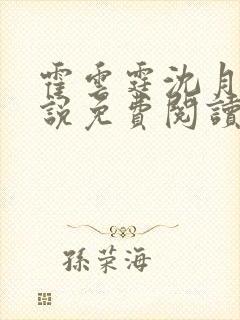 霍雲霆沈月
說免費閱讀
孫荣海